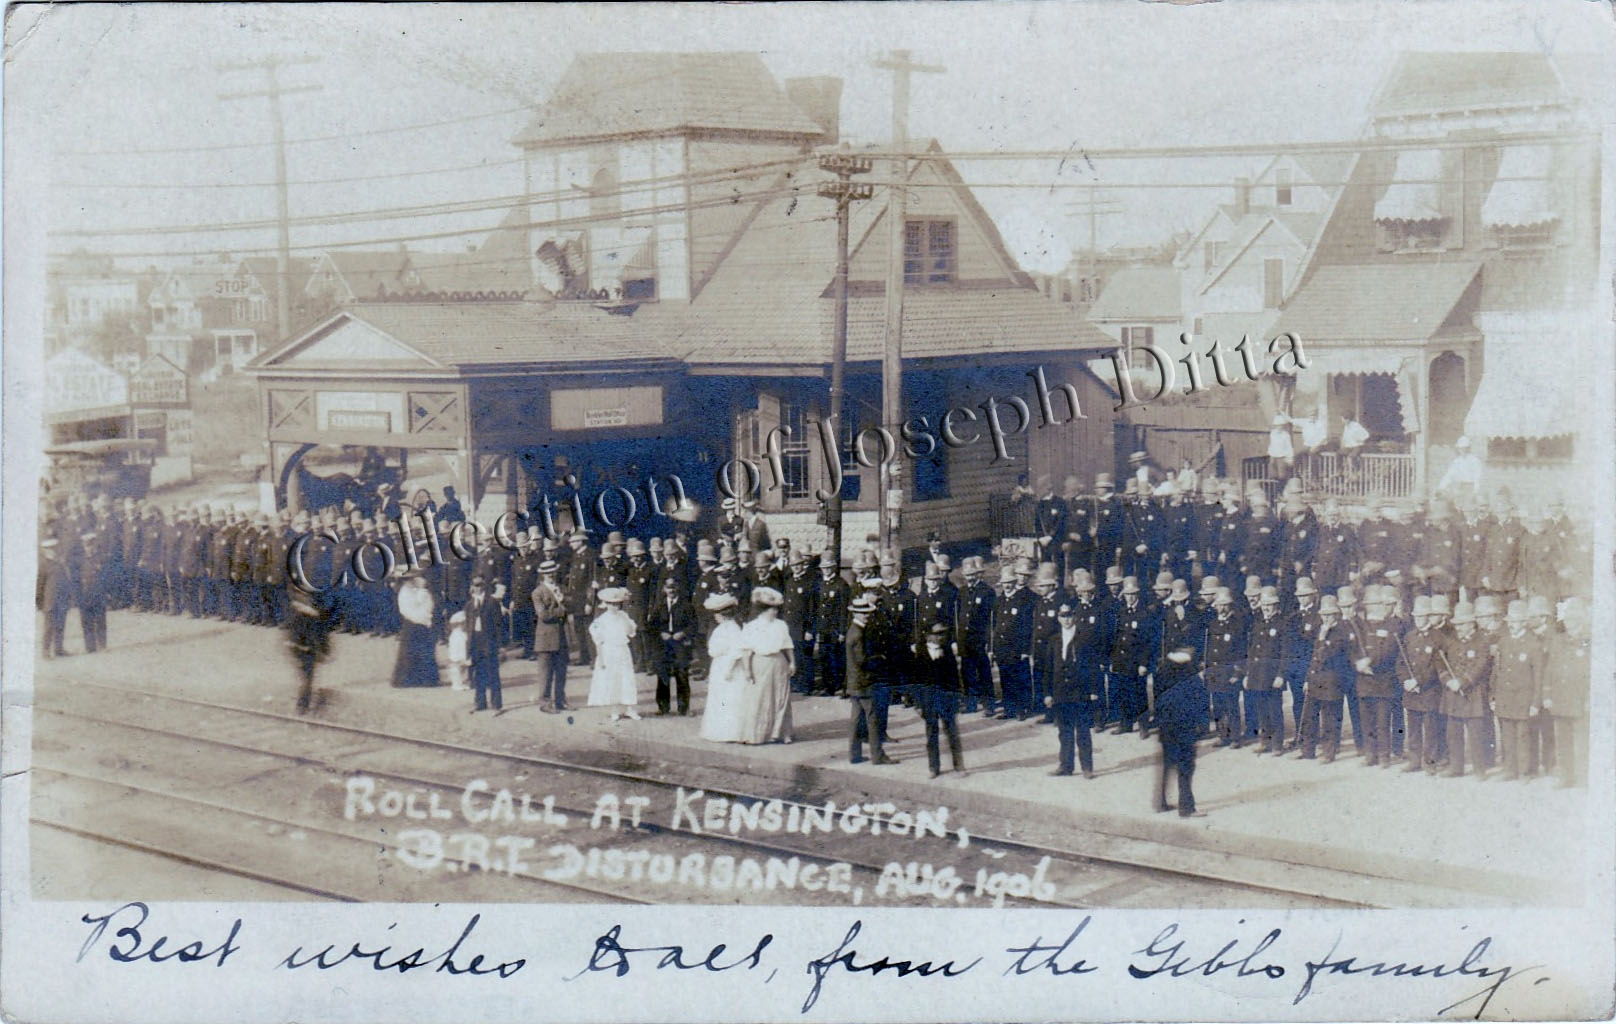 STOP
REAL ESTATE
EXCHANGE
KENSINGTON
Collection of Joseph Ditta
ROLL CALL AT KENSINGTON,
B.R.T. DISTURBANCE, AUG. 1906
Best wishes to all, from the Gibbs family.